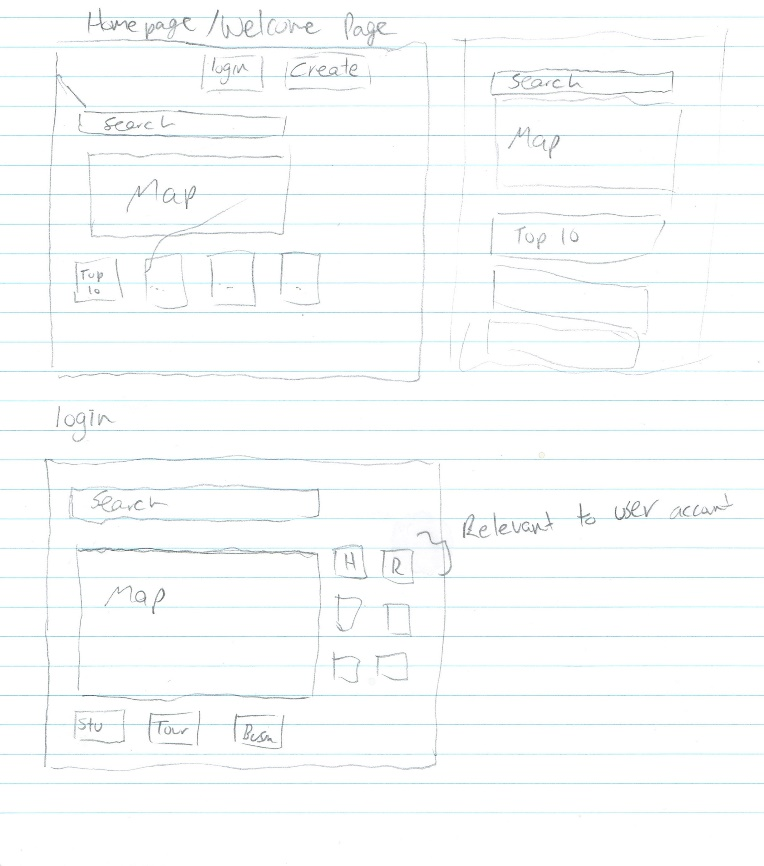 Homepage/Welcome Page
login Create
Search
Map
Top 10
...
--
-
Search
Map
Top 10
login
Search
Map
H R
Relevant to user account
Stu Tour Busn